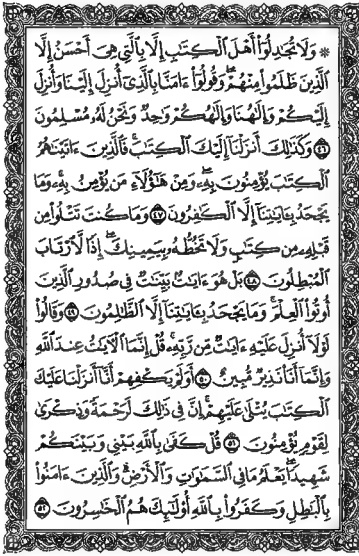 ۞ وَلَا تُجَٰدِلُوٓا۟ أَهْلَ ٱلْكِتَٰبِ إِلَّا بِٱلَّتِى هِىَ أَحْسَنُ إِلَّا
ٱلَّذِينَ ظَلَمُوا۟ مِنْهُمْ ۖ وَقُولُوٓا۟ ءَامَنَّا بِٱلَّذِىٓ أُنزِلَ إِلَيْنَا وَأُنزِلَ
إِلَيْكُمْ وَإِلَٰهُنَا وَإِلَٰهُكُمْ وَٰحِدٌ وَنَحْنُ لَهُۥ مُسْلِمُونَ
﴿٤٦﴾ وَكَذَٰلِكَ أَنزَلْنَآ إِلَيْكَ ٱلْكِتَٰبَ ۚ فَٱلَّذِينَ ءَاتَيْنَٰهُمُ
ٱلْكِتَٰبَ يُؤْمِنُونَ بِهِۦ ۖ وَمِنْ هَٰٓؤُلَآءِ مَن يُؤْمِنُ بِهِۦ ۚ وَمَا
يَجْحَدُ بِـَٔايَٰتِنَآ إِلَّا ٱلْكَٰفِرُونَ ﴿٤٧﴾ وَمَا كُنتَ تَتْلُوا۟ مِن
قَبْلِهِۦ مِن كِتَٰبٍ وَلَا تَخُطُّهُۥ بِيَمِينِكَ ۖ إِذًا لَّٱرْتَابَ
ٱلْمُبْطِلُونَ ﴿٤٨﴾ بَلْ هُوَ ءَايَٰتٌۢ بَيِّنَٰتٌ فِى صُدُورِ ٱلَّذِينَ
أُوتُوا۟ ٱلْعِلْمَ ۚ وَمَا يَجْحَدُ بِـَٔايَٰتِنَآ إِلَّا ٱلظَّٰلِمُونَ ﴿٤٩﴾ وَقَالُوا۟
لَوْلَآ أُنزِلَ عَلَيْهِ ءَايَٰتٌ مِّن رَّبِّهِۦ ۖ قُلْ إِنَّمَا ٱلْـَٔايَٰتُ عِندَ ٱللَّهِ
وَإِنَّمَآ أَنَا۠ نَذِيرٌ مُّبِينٌ ﴿٥٠﴾ أَوَلَمْ يَكْفِهِمْ أَنَّآ أَنزَلْنَا عَلَيْكَ
ٱلْكِتَٰبَ يُتْلَىٰ عَلَيْهِمْ ۚ إِنَّ فِى ذَٰلِكَ لَرَحْمَةً وَذِكْرَىٰ
لِقَوْمٍ يُؤْمِنُونَ ﴿٥١﴾ قُلْ كَفَىٰ بِٱللَّهِ بَيْنِى وَبَيْنَكُمْ
شَهِيدًا ۖ يَعْلَمُ مَا فِى ٱلسَّمَٰوَٰتِ وَٱلْأَرْضِ ۗ وَٱلَّذِينَ ءَامَنُوا۟
بِٱلْبَٰطِلِ وَكَفَرُوا۟ بِٱللَّهِ أُو۟لَٰٓئِكَ هُمُ ٱلْخَٰسِرُونَ ﴿٥٢﴾